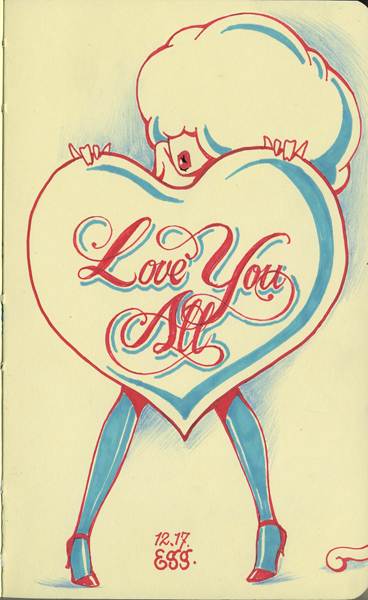 Love You
All
12.17.
Egg.